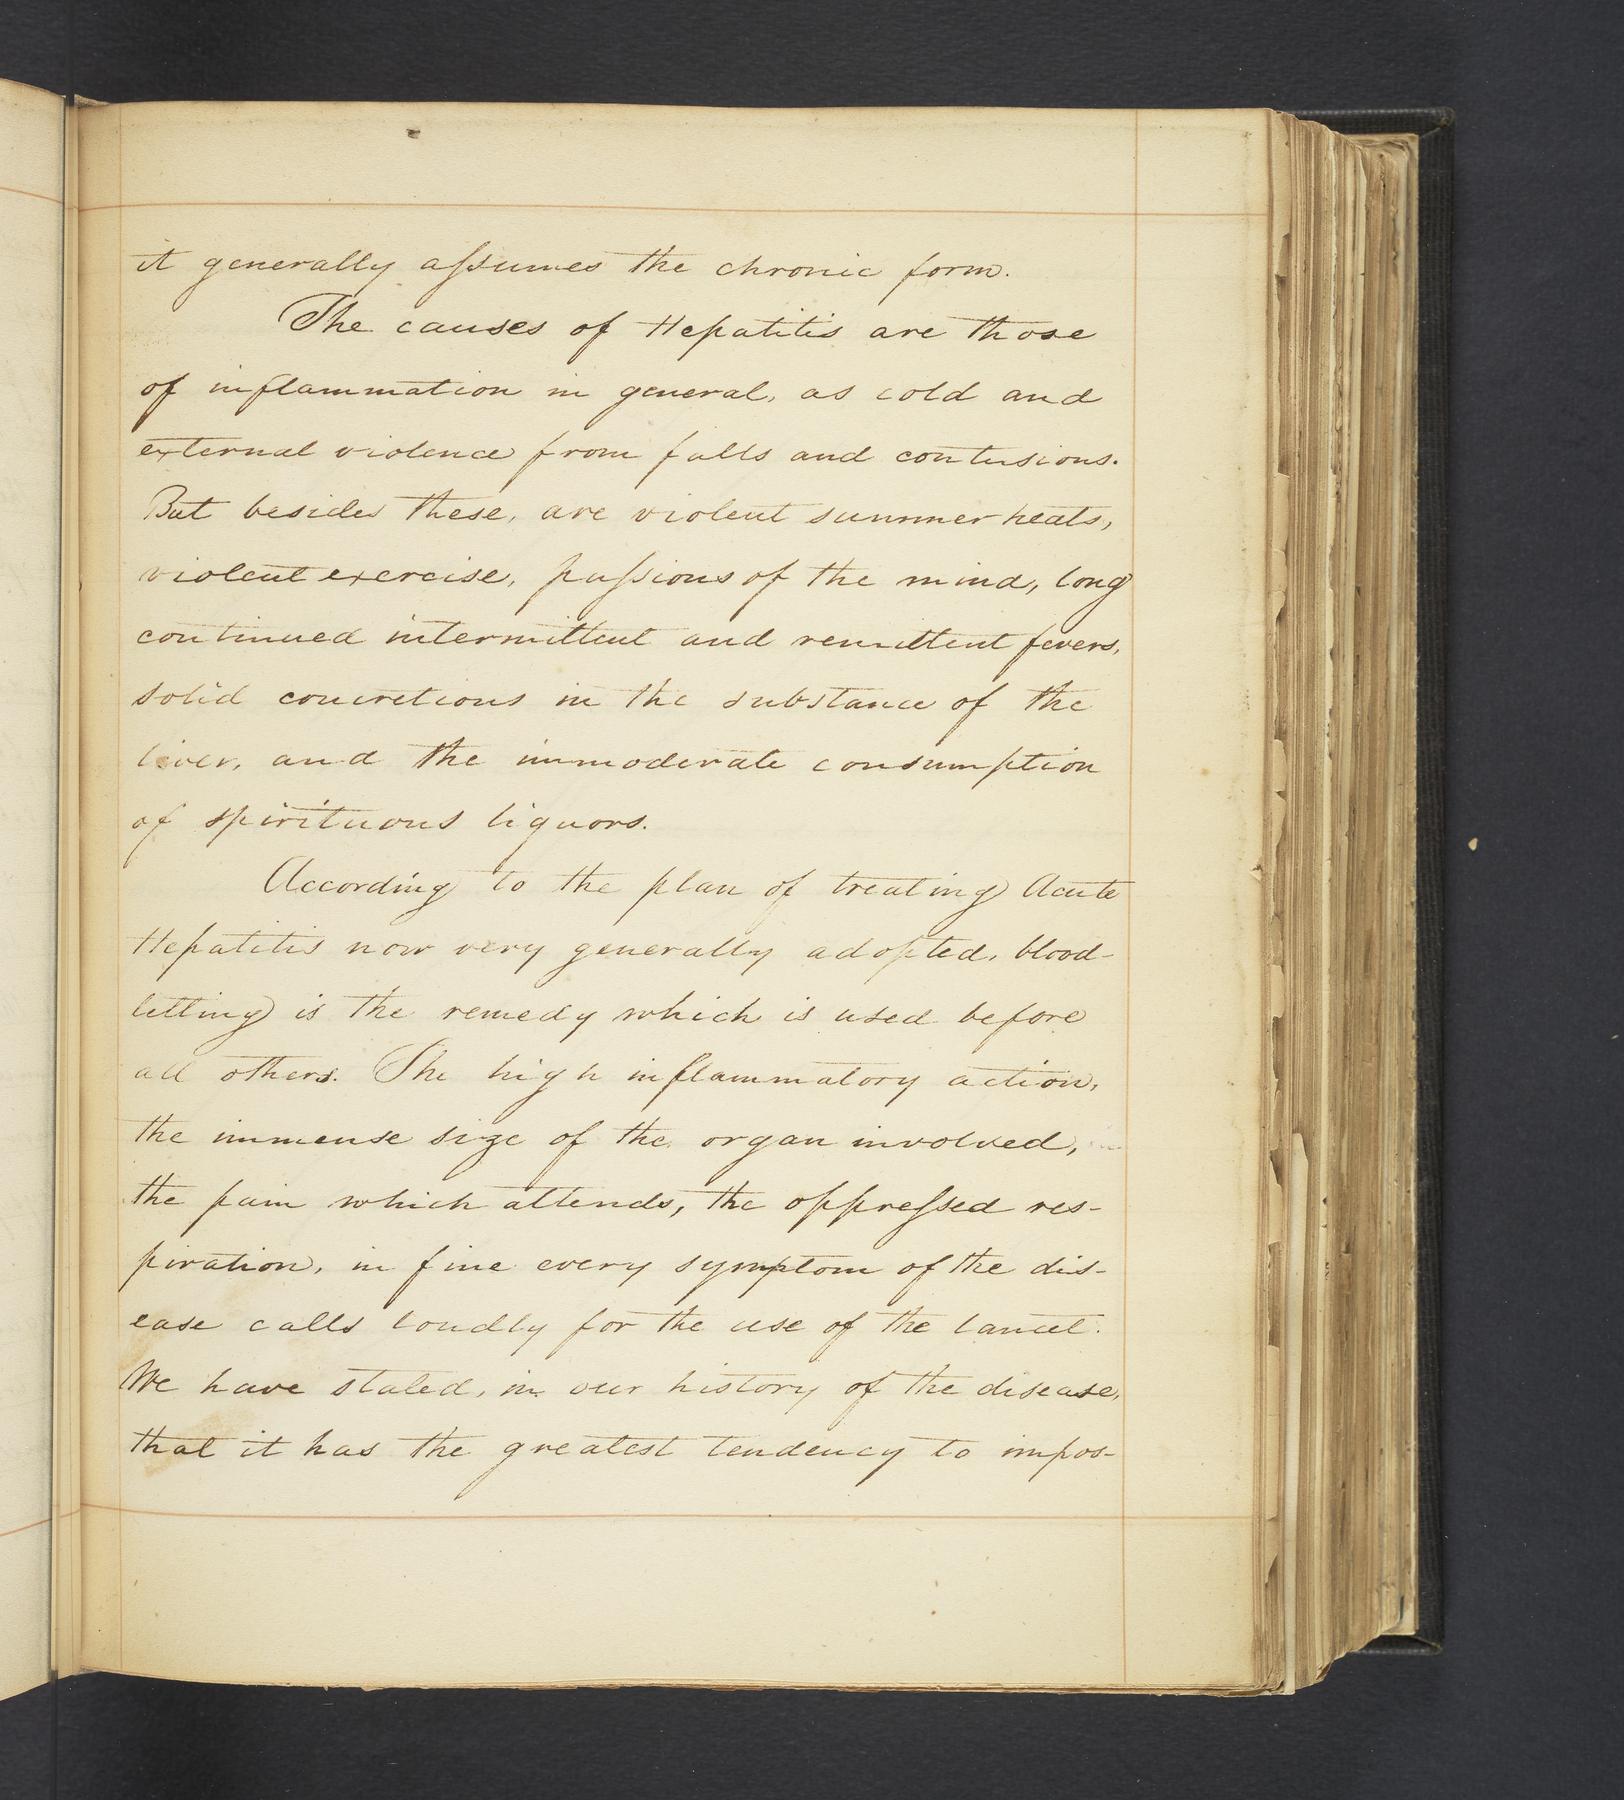 it generally aſsumes the chronic form.
The causes of Hepatitis are those
of inflammation in general, as cold and
external violence from falls and contusions.
But besides these, are violent summer heats,
violent exercise, paſsions of the mind, long
continued intermittent and remittent fevers,
solid concretions in the substance of the
liver, and the immoderate consumption
of spirituous liquors.
According to the plan of treating Acute
Hepatitis now very generally adopted, blood-
letting is the remedy which is used before
all others. The high inflammatory action,
the immense size of the organ involved,
the pain which attends, the oppreſsed res-
piration, in fine every symptom of the dis-
ease calls loudly for the use of the lancet.
We have stated, in our history of the disease,
that it has the greatest tendency to impos-